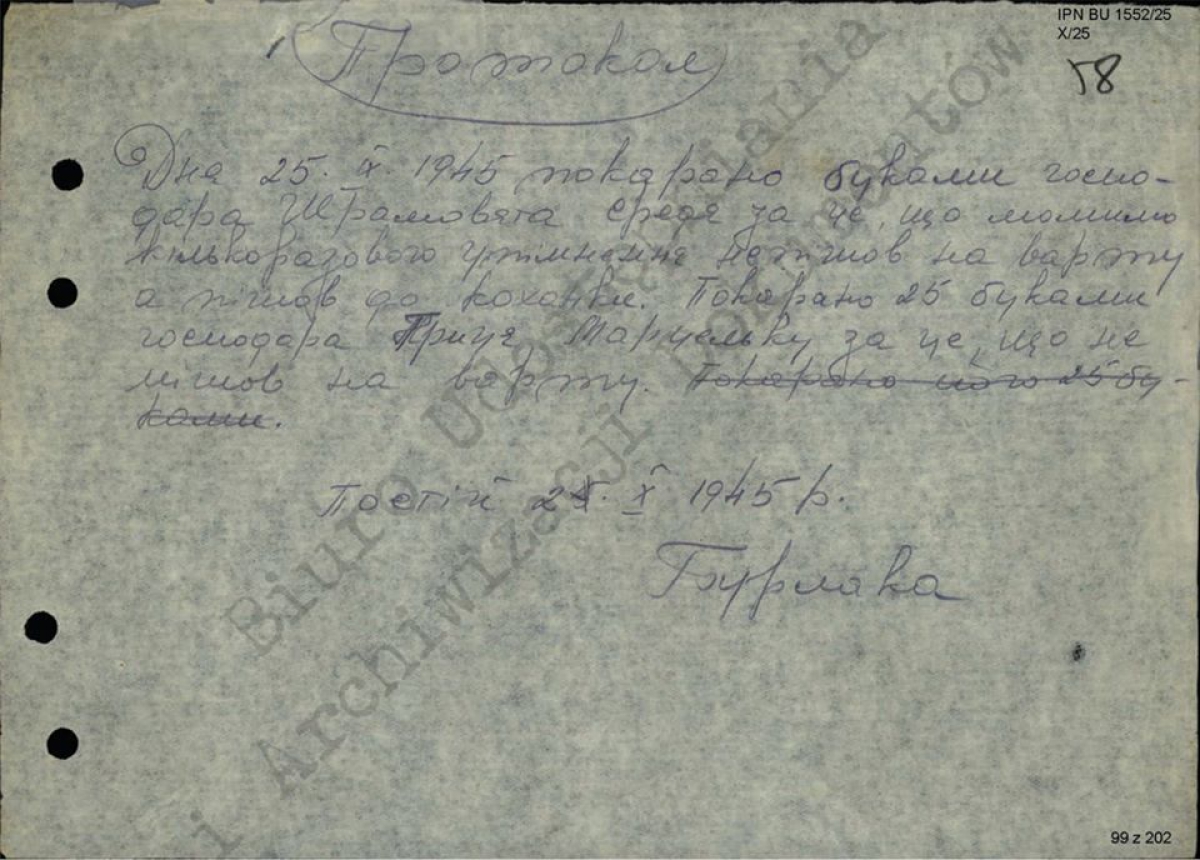 IPN BU 1552/25
X/25
58
Протокол
Дня 25. ІХ. 1945 покарано буками госпо-
дара за це, що мимо
кількоразового упімнення непішов на варту
а пішов до коханки. Покарано 25 буками
господара Гриця Марцельку за це, що не
пішов на варту. Покарано його 25 бу-
ками.
Постій 25. Х 1945 р.
Бурлака
Biuro Udostępniania
i Archiwizacji Dokumentów
99 z 202